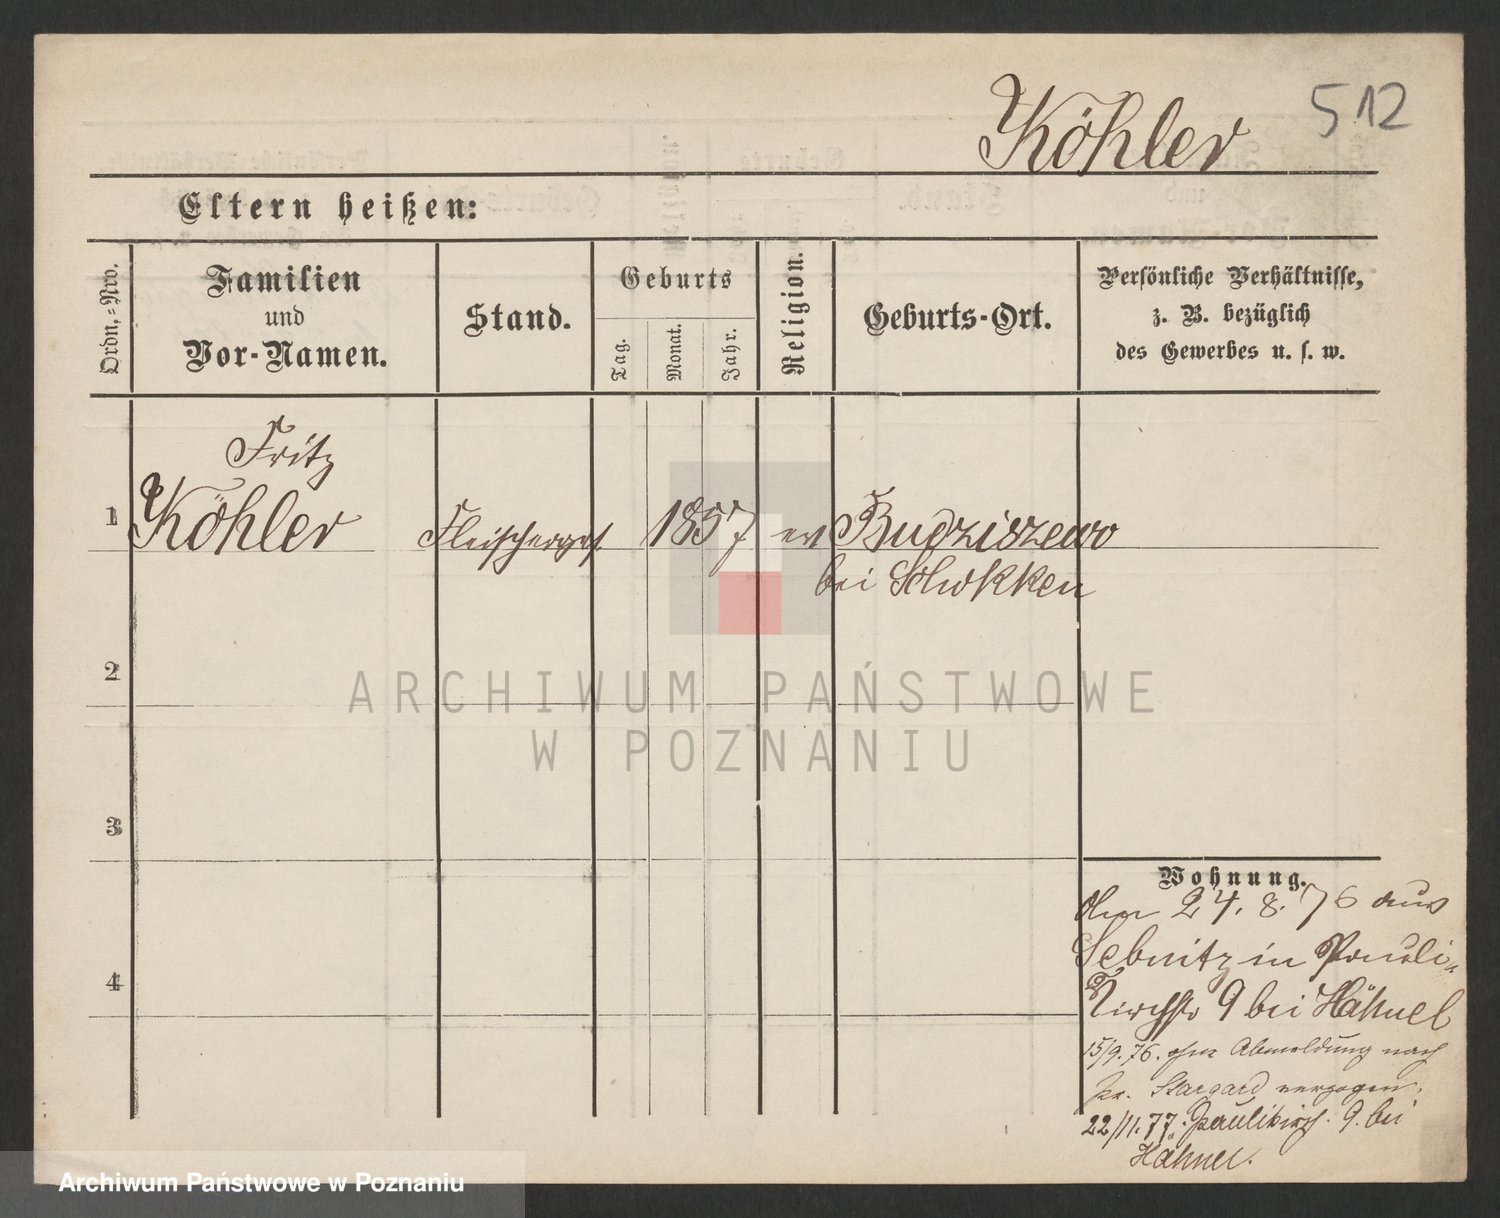 Köhler 512
Eltern heißen:
Ordn.=Nro.
Familien
und
Vor-Namen.
Stand.
Geburts
Tag.
Monat.
Jahr.
Religion.
Geburts-Ort.
Persönliche Verhältnisse,
z. B. bezüglich
des Gewerbes u. s. w.
Fritz
1 Köhler Fleischerges. 1857 ev Budziszewo
bei Schokken
2
3
4
Wohnung.
24. 8. 76 aus
Sebnitz in Pauli-
Kirchstr 9 bei Hähnel
15/9. 76. ohne Abmeldung nach
Pr. Stargard verzogen.
22/11. 77. Paulikirch. 9. bei
Hähnel.
ARCHIWUM PAŃSTWOWE
W POZNANIU
Archiwum Państwowe w Poznaniu